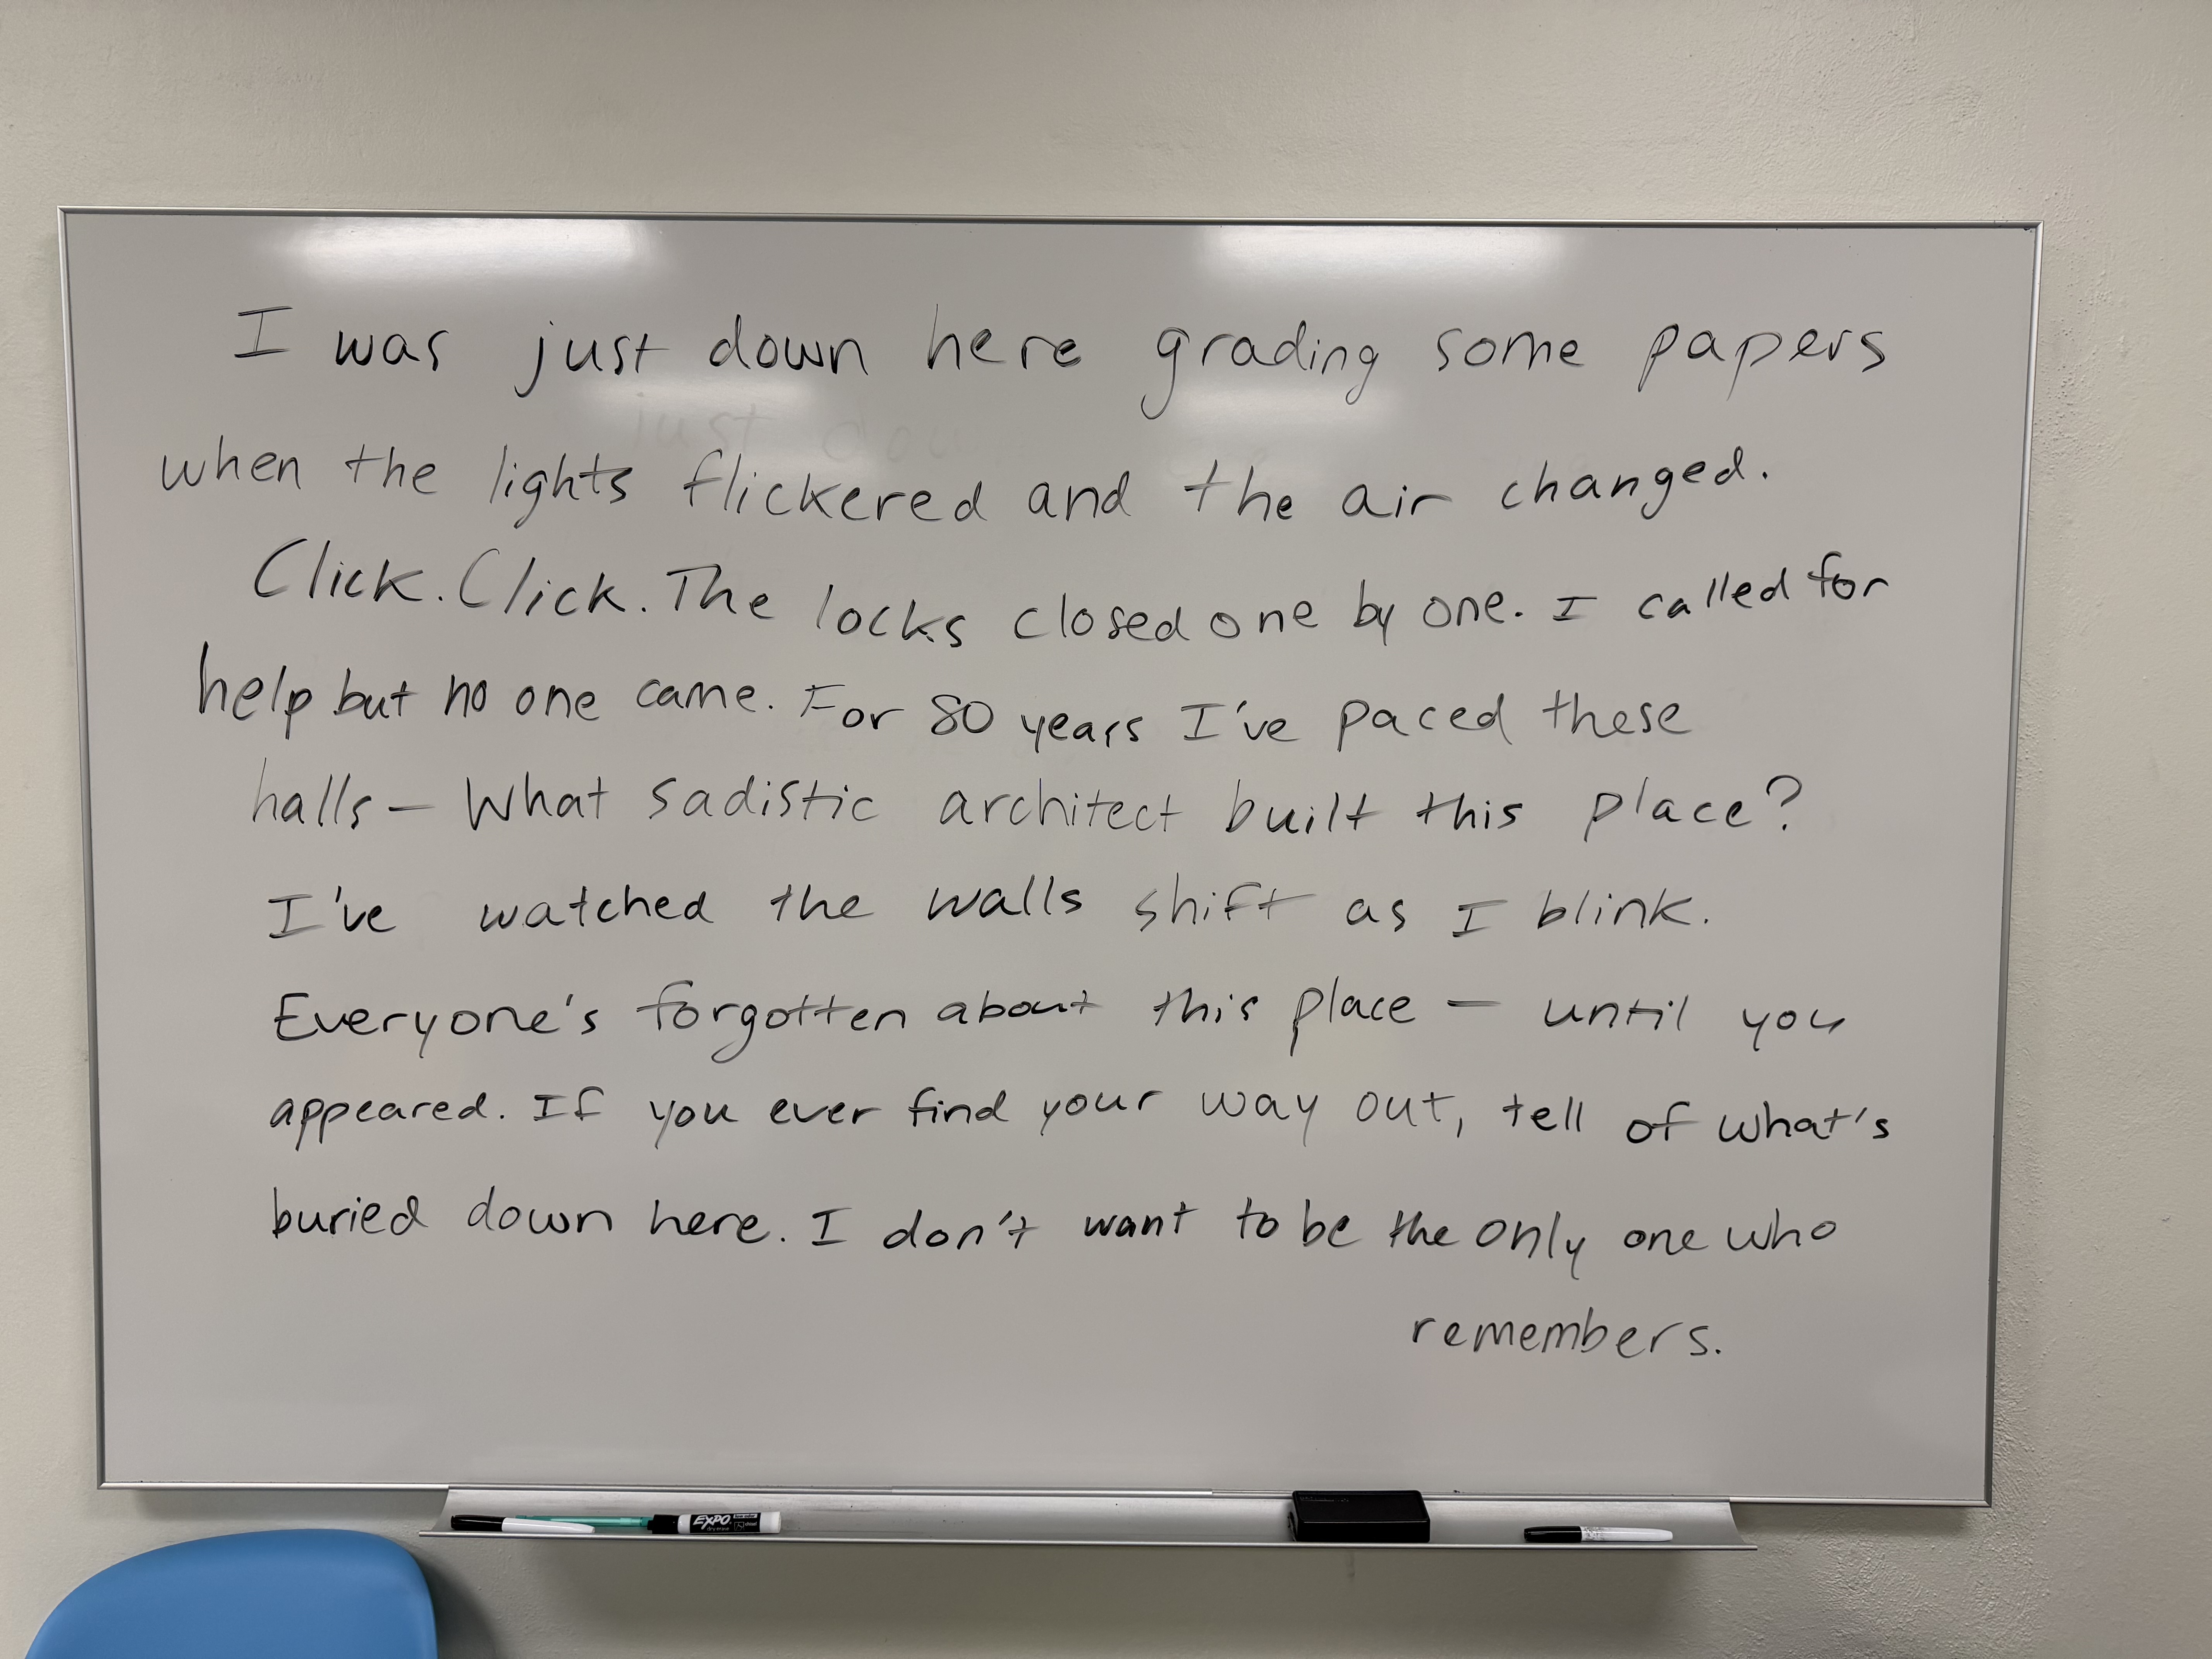 I was just down here grading some papers
when the lights flickered and the air changed.
Click. Click. The locks closed one by one. I called for
help but no one came. For 80 years I've paced these
halls — What sadistic architect built this place?
I've watched the walls shift as I blink.
Everyone's forgotten about this place — until you
appeared. If you ever find your way out, tell of what's
buried down here. I don't want to be the only one who
remembers.
EXPO